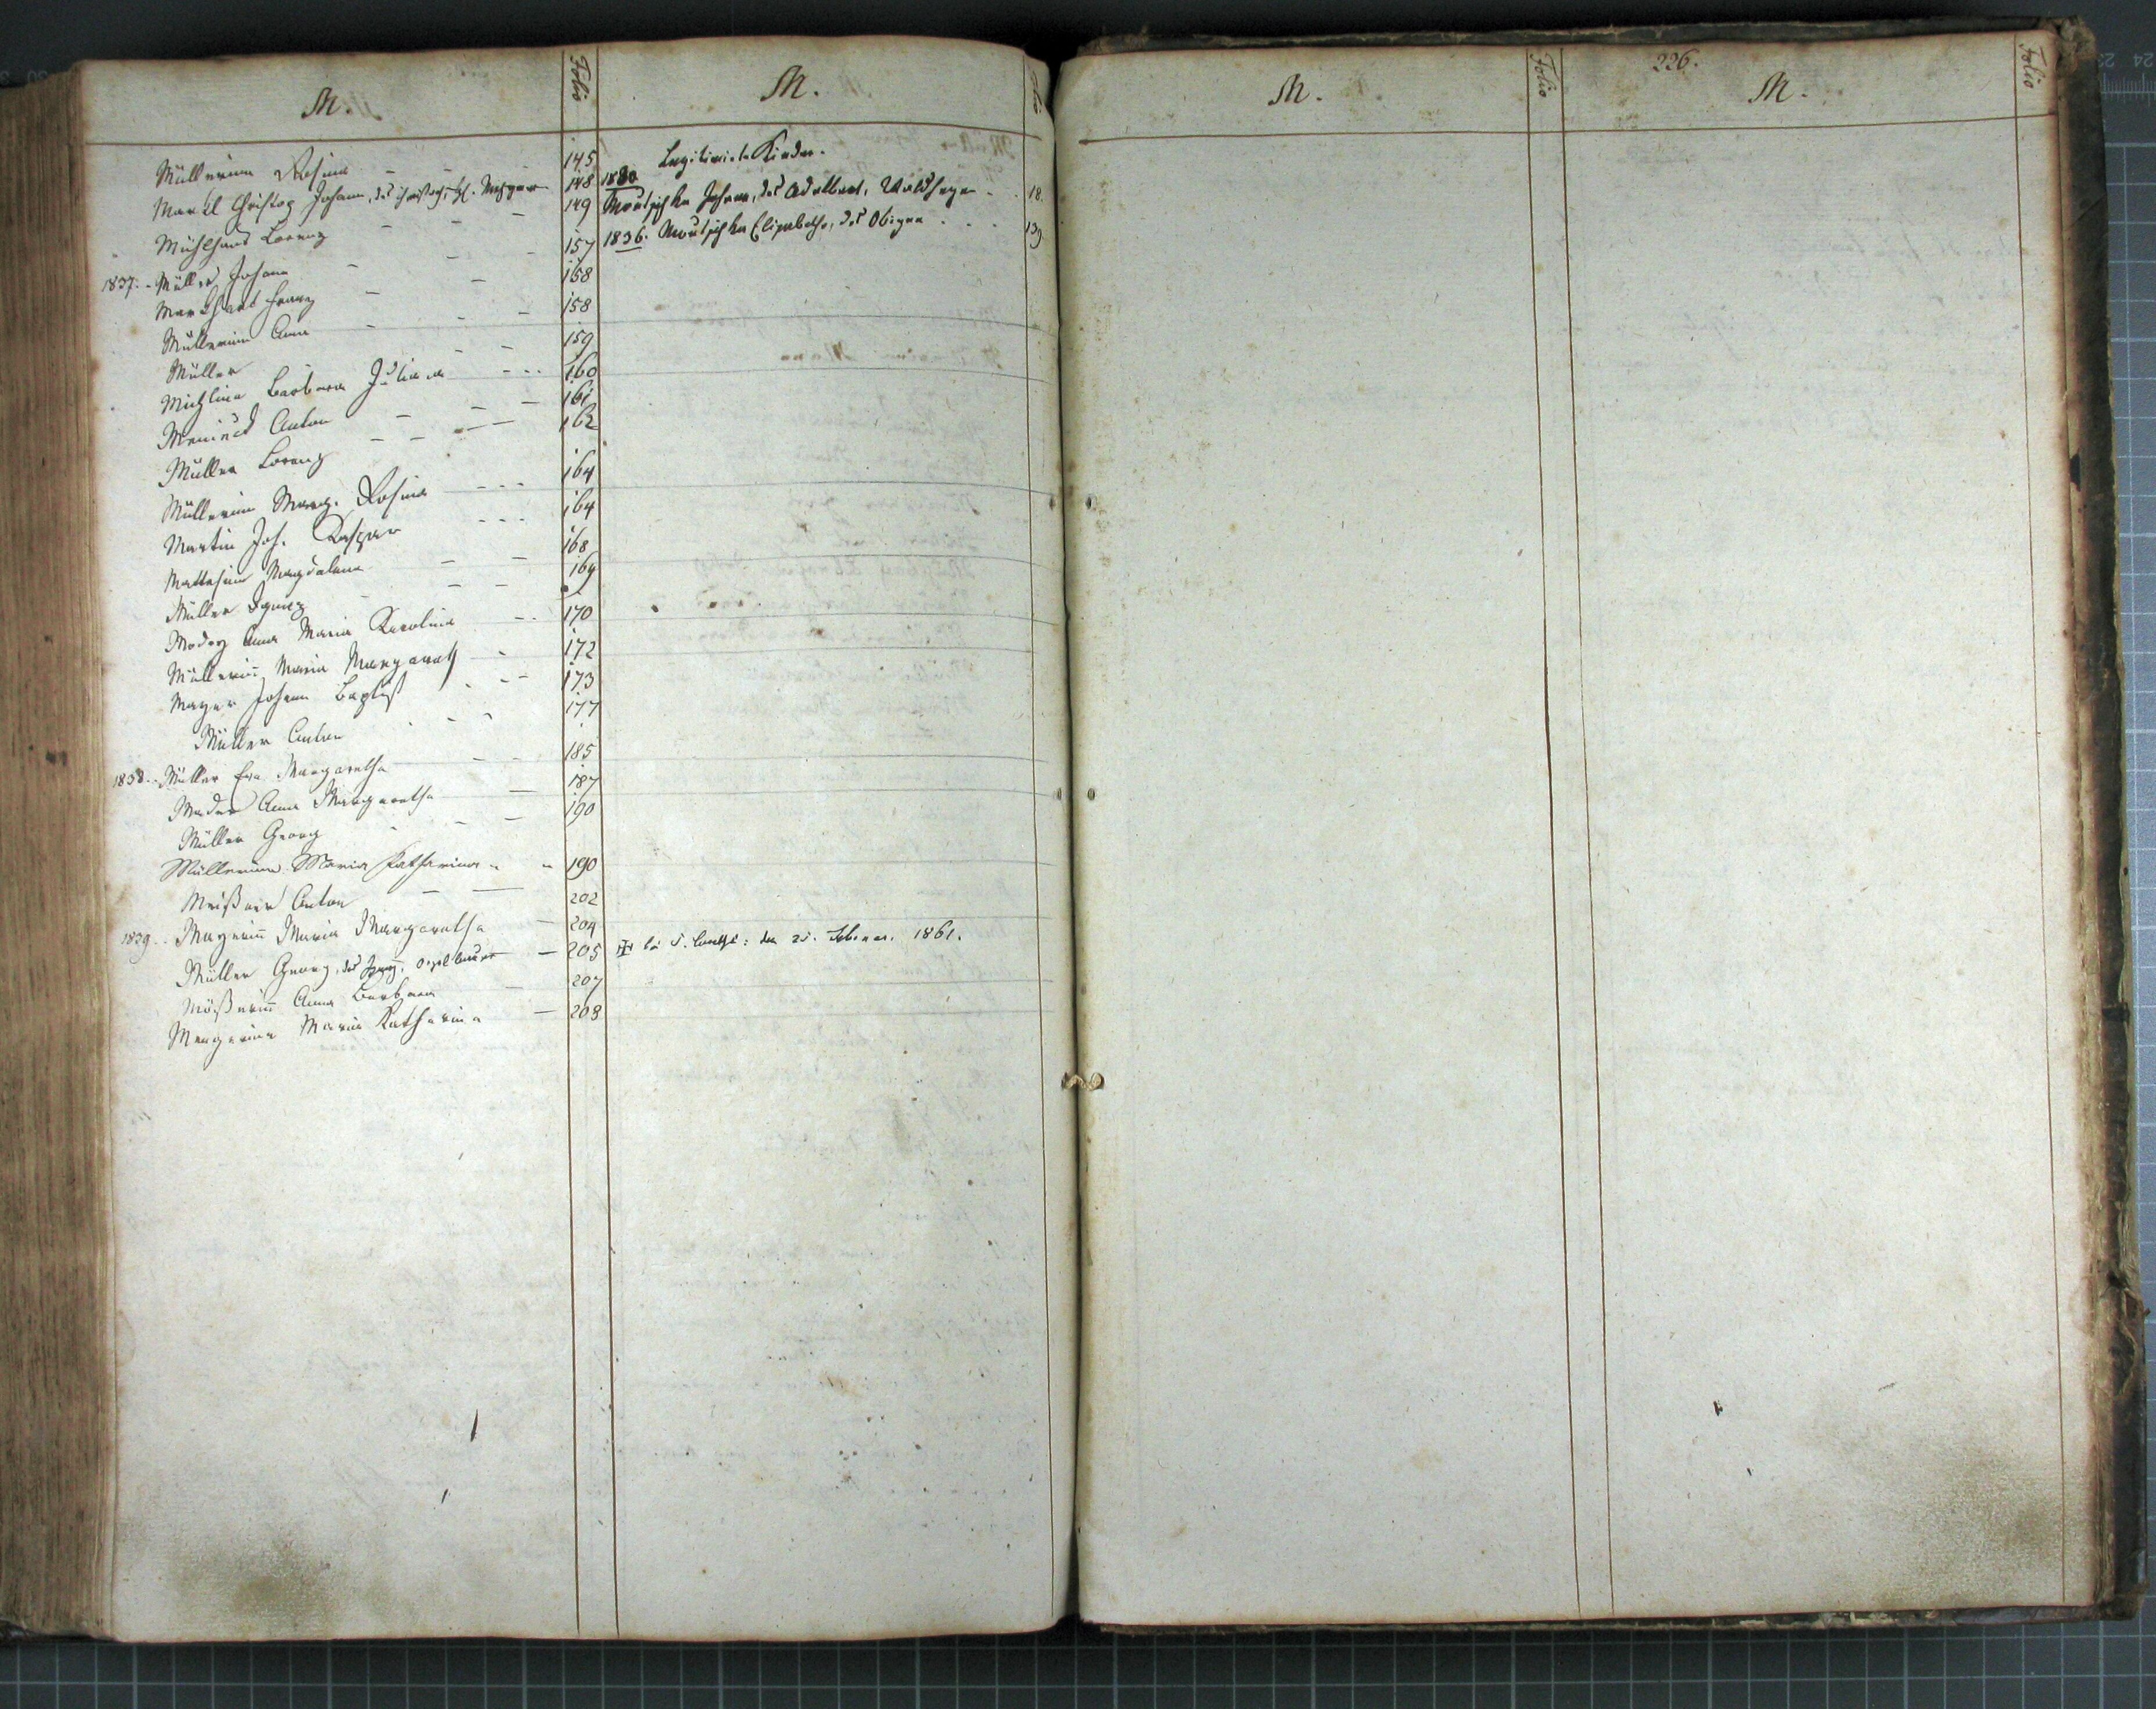 M.
Folio
Müllerin Rosina - - - 145
Martl Christof Johann, des Christoph, 148
Mühlhans Lorenz - - - 149
1837. Müller Johann - - - 157
Markhart Franz - - 158
Müllerin Anna - - - 158
Müller - - 159
Michlin Barbara Juliana - - - 160
Anton - - - 161
Müller Lorenz - - - - 162
Müllerin Marg. Rosina - - - 164
Martin Joh. Kaspar - - - 164
Mattesin Magdalena - - 168
Müller Ignaz - - - 169
Anna Maria Karolina - - 170
Müllerin Maria Margareth - 172
Mayer Johann Baptist - - - 173
Müller Anton - - - 177
1838. Müller Eva Margaretha - - 185
Mader Anna Margaretha - 187
Müller Georg - - - 190
Müllerin Maria Katharina - - 190
Meißner Anton - - 202
1839. Mayerin Maria Margaretha - 204
Müller Georg, des Ignaz, Orgelbauer - 205
Mößnerin Anna Barbara - 207
Maria Katharina - 208
M.
Folio
Legitimirte Kinder.
1830 Motschka Johann, des Adalbert, Waldheger . . 18.
1836. Motschka Elisabetha, des Obigen . . . 139
den 25. Februar. 1861.
M.
Folio
226.
M.
Folio